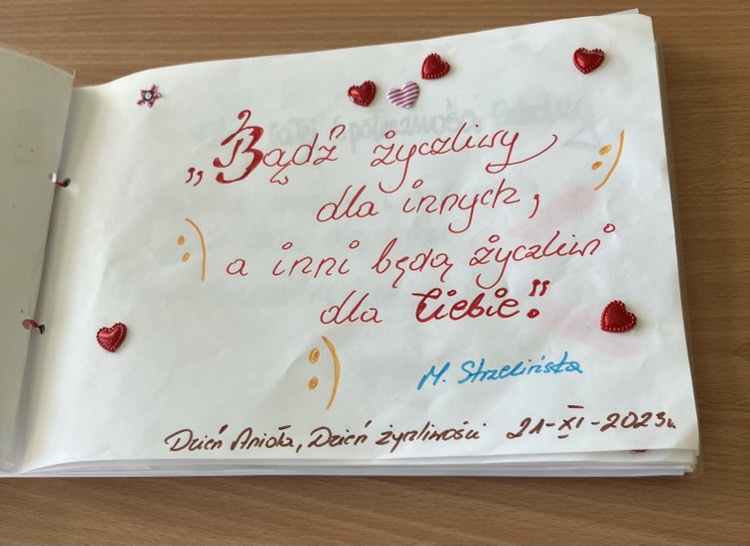 „Bądź życzliwy
dla innych,
a inni będą życzliwi
dla Ciebie."
M. Strzelińska
Dzień Anioła, Dzień życzliwości 21-XI-2023r.